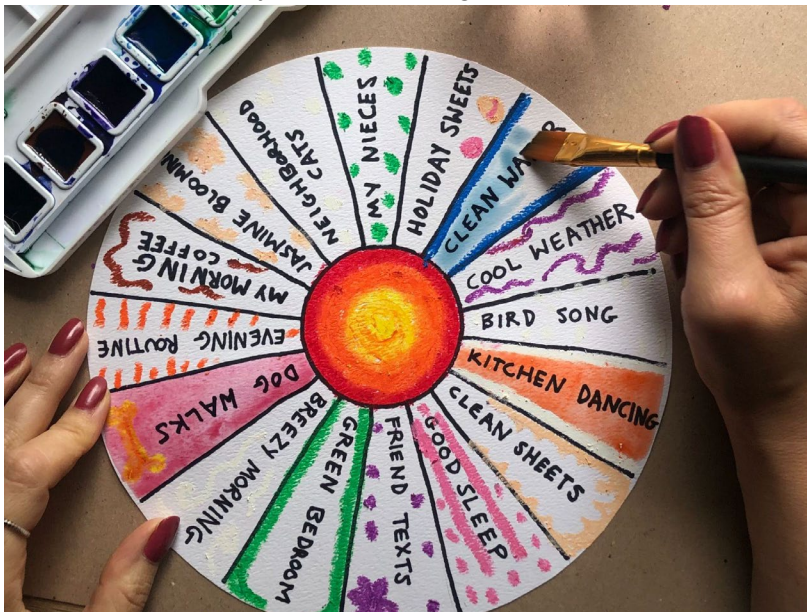 MY NIECES
HOLIDAY SWEETS
CLEAN WATER
COOL WEATHER
BIRD SONG
KITCHEN DANCING
CLEAN SHEETS
GOOD SLEEP
FRIEND TEXTS
GREEN BEDROOM
BREEZY MORNING
DOG WALKS
EVENING ROUTINE
MY MORNING
COFFEE
JASMINE BLOOMN
NEIGHBORHOOD
CATS